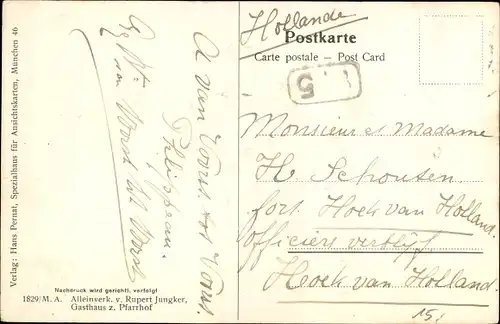 Hollande
Postkarte
Carte postale – Post Card
5
Monsieur et Madame
H. Schouten
fort Hoek van Holland.
officiers verblijf
Hoek van Holland.
15,
A van Voorst tot Voorst
van Voorst tot Voorst
Verlag: Hans Pernat, Spezialhaus für Ansichtskarten, München 46
Nachdruck wird gerichtl. verfolgt
1829/M. A. Alleinverk. v. Rupert Jungker,
Gasthaus z. Pfarrhof